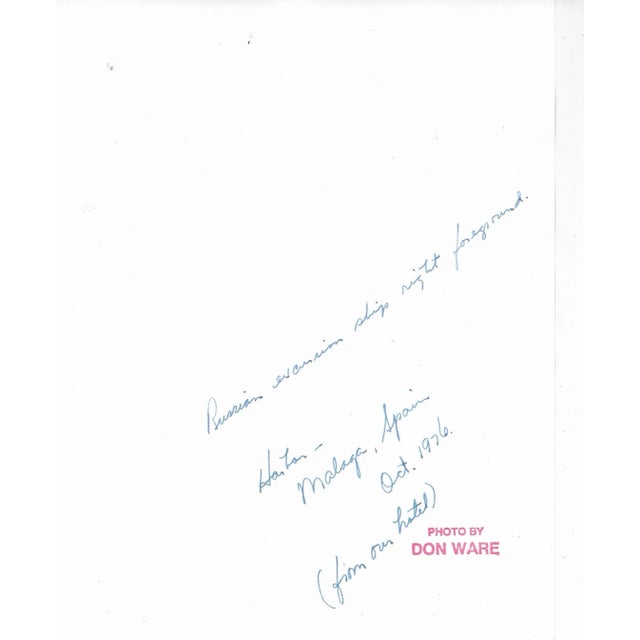 Russian excursion ship right foreground.
Harbor –
Malaga, Spain
Oct. 1976.
(from our hotel)
PHOTO BY
DON WARE